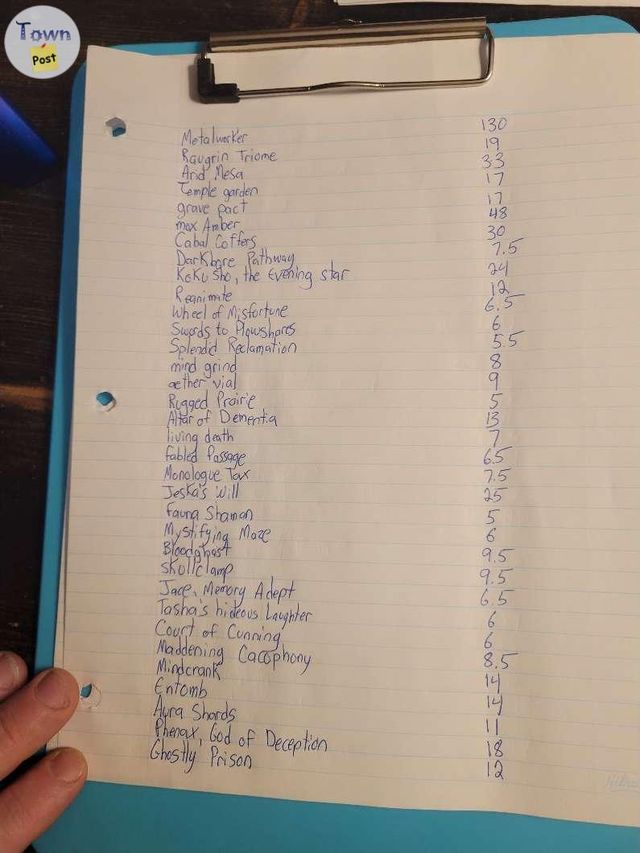 Town
Post
Metalworker 130
Raugrin Triome 19
Arid Mesa 33
Temple garden 17
grave pact 17
mox Amber 48
Cabal Coffers 30
Darkbore Pathway 7.5
Kokusho, the Evening star 24
Reanimate 12
Wheel of Misfortune 6.5
Swords to Plowshares 6
Splendid Reclamation 5.5
mind grind 8
aether vial 9
Rugged Prairie 5
Altar of Dementia 13
living death 7
fabled Passage 6.5
Monologue Tax 7.5
Jeska's Will 25
Fauna Shaman 5
Mystifying Maze 6
Bloodghast 9.5
Skullclamp 9.5
Jace, Memory Adept 6.5
Tasha's hideous Laughter 6
Court of Cunning 6
Maddening Cacophony 8.5
Mindcrank 14
Entomb 14
Aura Shards 11
Phenax, God of Deception 18
Ghostly Prison 12